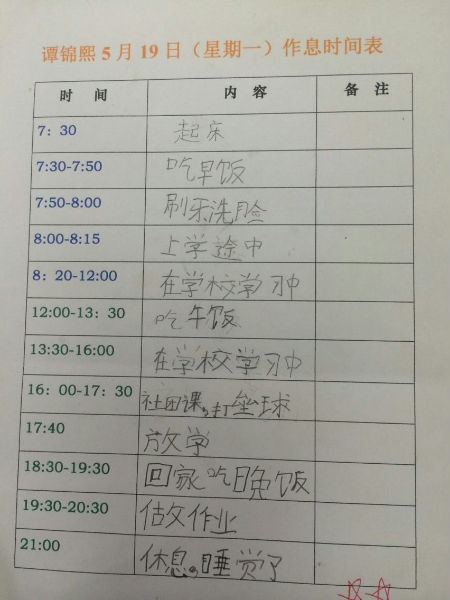 谭锦熙5月19日（星期一）作息时间表
时 间 内 容 备 注
7：30 起床
7:30-7:50 吃早饭
7:50-8:00 刷牙洗脸
8:00-8:15 上学途中
8：20-12:00 在学校学习中
12:00-13：30 吃午饭
13:30-16:00 在学校学习中
16：00-17：30 社团课,打垒球
17:40 放学
18:30-19:30 回家吃晚饭
19:30-20:30 作业
21:00 休息。睡觉了